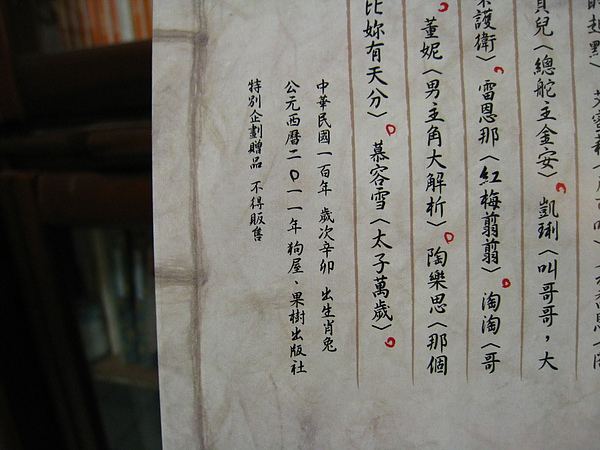 貝兒〈總舵主金安〉 凱琍〈叫哥哥，大
護衛〉 雷恩那〈紅梅翦翦〉 淘淘〈哥
董妮〈男主角大解析〉 陶樂思〈那個
比妳有天分〉 慕容雪〈太子萬歲〉
中華民國一百年 歲次辛卯 出生肖兔
公元西曆二０一一年狗屋、果樹出版社
特別企劃贈品 不得販售